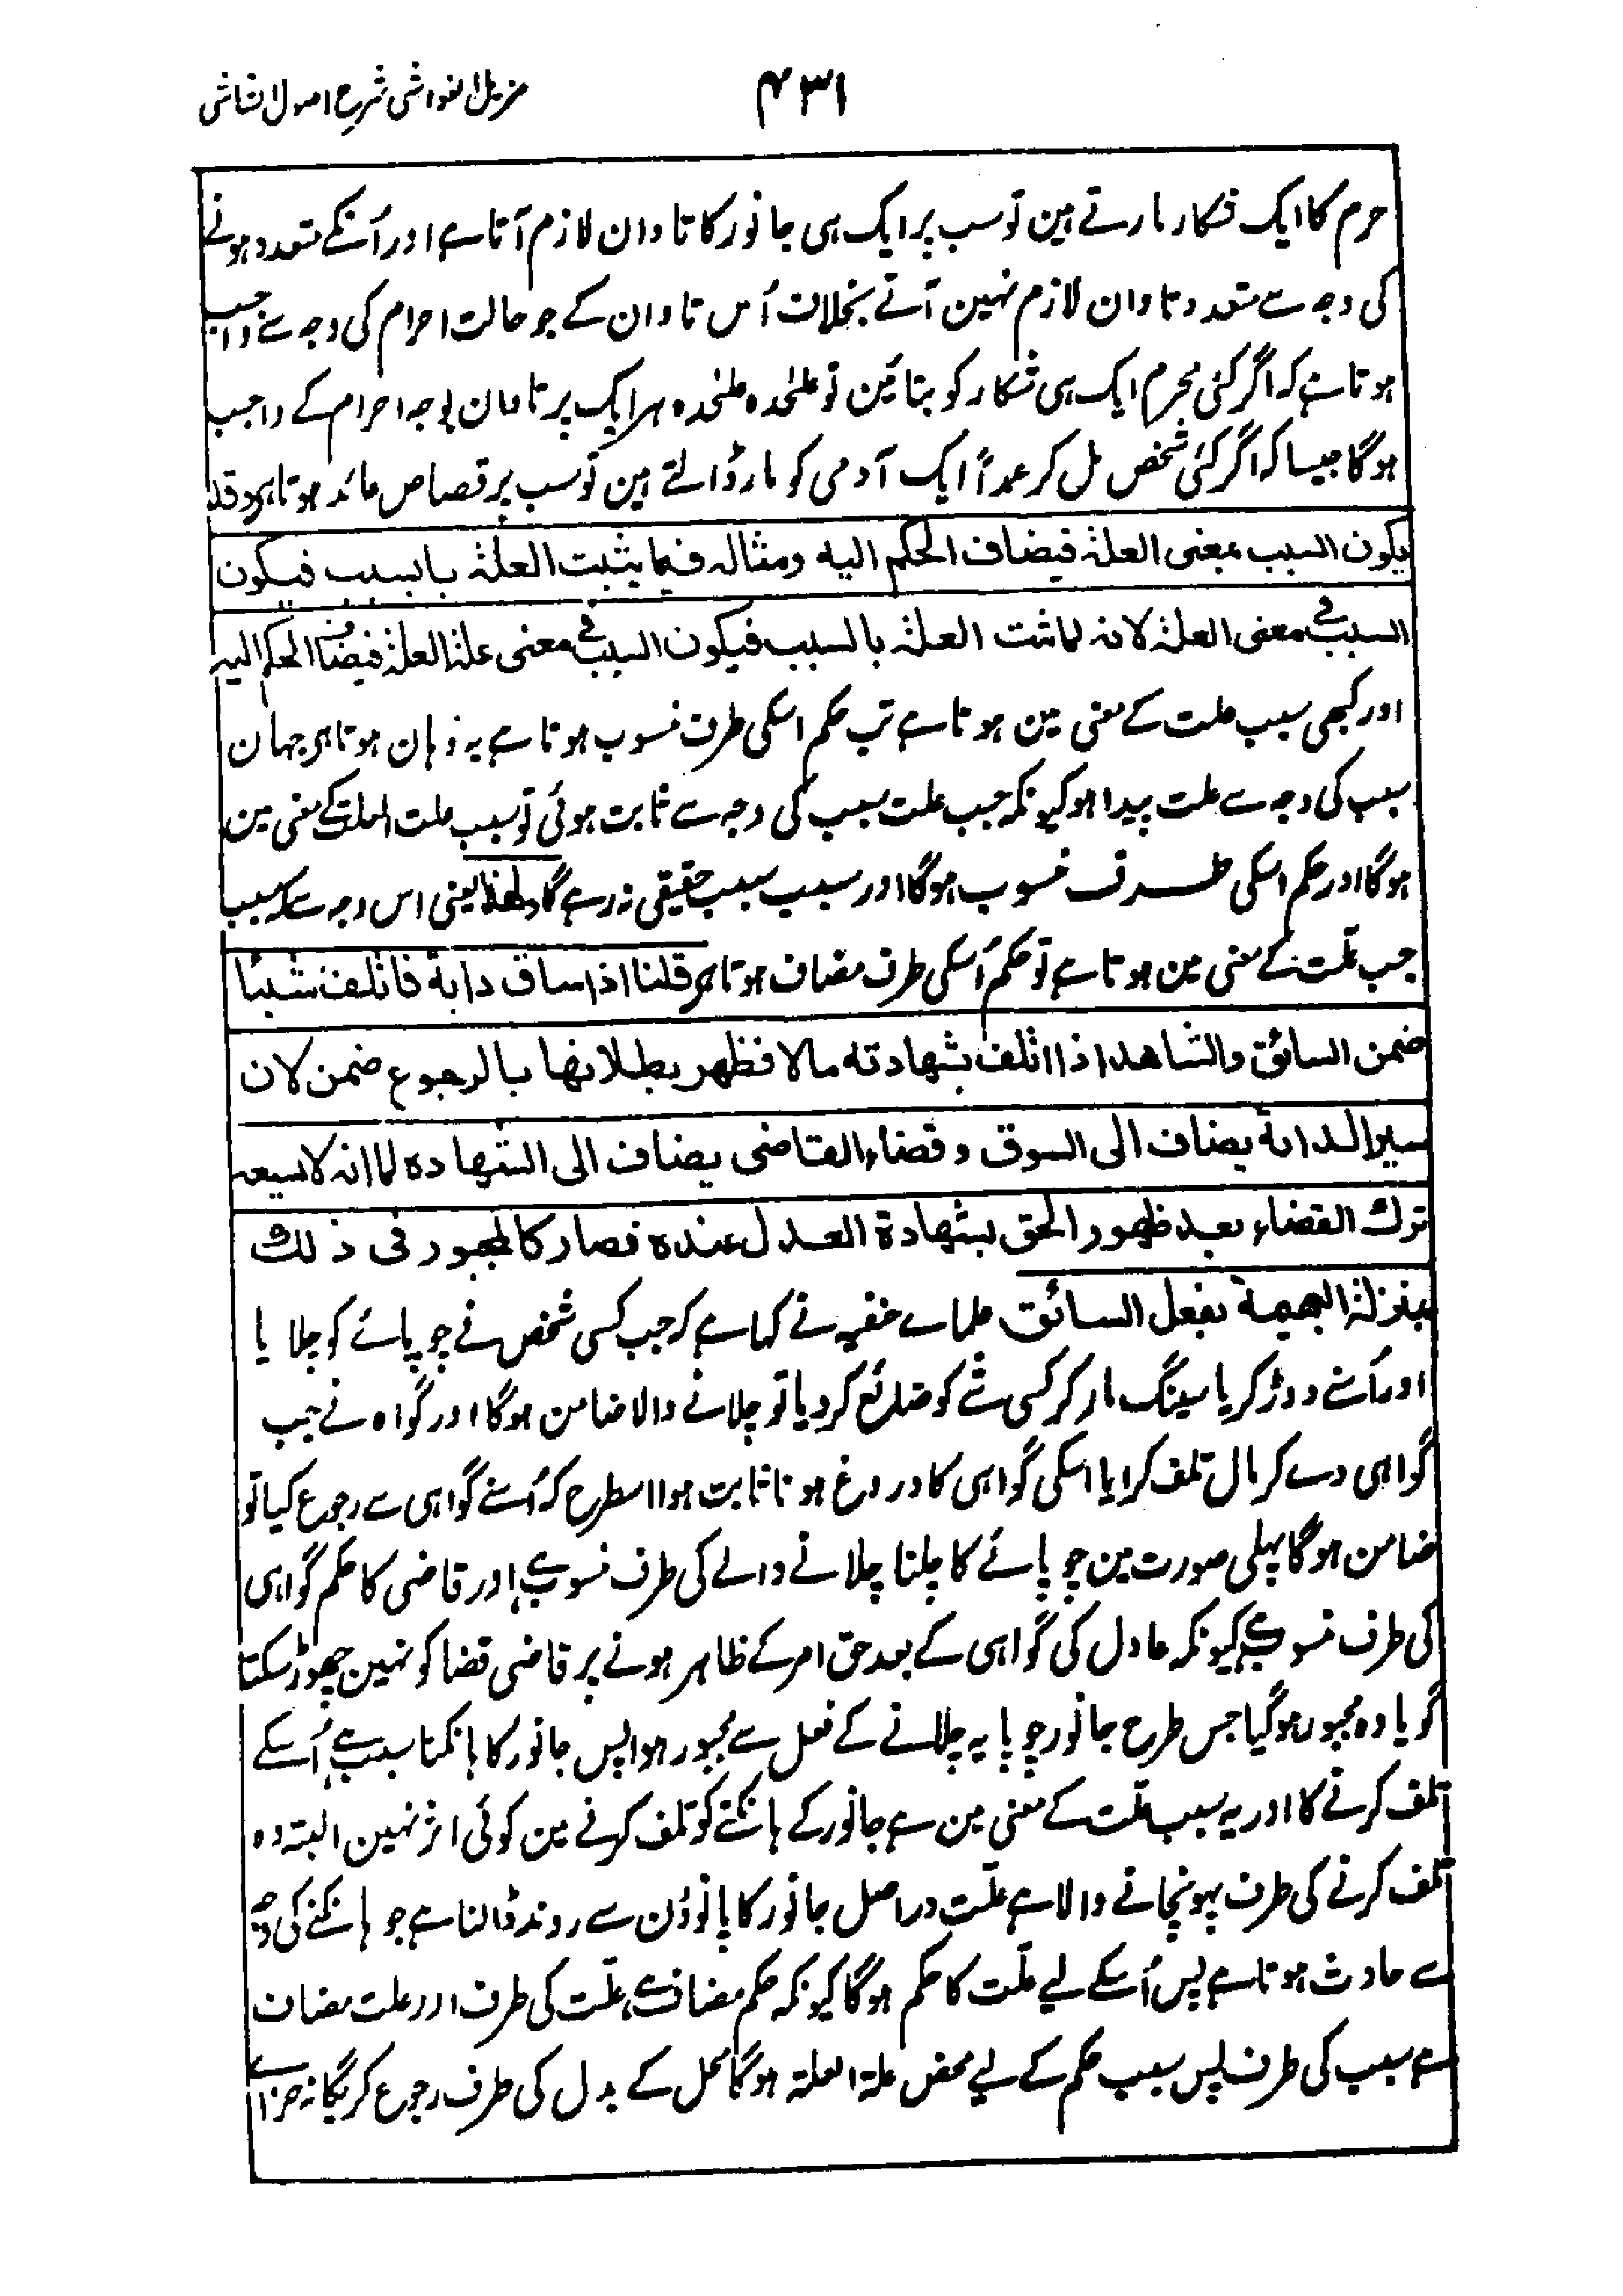 ۴۳۱
مزیل الغواشی شرح اصول الشاشی
حرم کا ایک شکار مارتے ہین تو سب پر ایک ہی جانور کا تاوان لازم آتا ہے اور اُنکے متعدد ہونے
کی وجہ سے متعدد تاوان لازم نہین آتے بخلاف اُس تاوان کے جو حالت احرام کی وجہ سے واجب
ہوتا ہے کہ اگر کئی محرم ایک ہی شکار کو بتائین تو علٰحدہ علٰحدہ ہر ایک پر تاوان بوجہ احرام کے واجب
ہوگا جیسا کہ اگر کئی شخص مل کر عمداً ایک آدمی کو مار ڈالتے ہین تو سب پر قصاص عائد ہوتا ہی وقد
یکون السبب بمعنی العلۃ فیضاف الحکم الیہ ومثالہ فیما یثبت العلۃ بالسبب فیکون
السبب فی معنی العلۃ لانہ لما ثبت العلۃ بالسبب فیکون السبب فی معنی علۃ العلۃ فیضاف الحکم الیہ
اور کبھی سبب علت کے معنی مین ہوتا ہے تب حکم اسکی طرف منسوب ہوتا ہے یہ وہان ہوتا ہی جہان
سبب کی وجہ سے علت پیدا ہو کیونکہ جب علت سبب کی وجہ سے ثابت ہوئی تو سبب علت العلت کے معنی مین
ہوگا اور حکم اسکی طرف منسوب ہوگا اور سبب سبب حقیقی نہ رہے گا ولھٰذا یعنی اس وجہ سے کہ سبب
جب علّت کے معنی مین ہوتا ہے تو حکم اُسکی طرف مضاف ہوتا ہی قلنا اذا ساق دابۃ فاتلف شیئا
ضمن السائق والشاھد اذا اتلف بشھادتہ مالا فظھر بطلانھا بالرجوع ضمن لان
سیر الدابۃ یضاف الی السوق وقضاء القاضی یضاف الی الشھادہ لما انہ لا یسعہ
ترک القضاء بعد ظھور الحق بشھادۃ العدل عندہ فصار کالمجبور فی ذلک
بمنزلۃ البھیمۃ بفعل السائق علماے حنفیہ نے کہا ہے کہ جب کسی شخص نے چوپائے کو چلایا
اور اُسنے دوڑ کر یا سینگ مار کر کسی شے کو ضائع کردیا تو چلانے والا ضامن ہوگا اور گواہ نے جب
گواہی دے کر مال تلف کرایا اسکی گواہی کا دروغ ہونا ثابت ہوا اسطرح کہ اُسنے گواہی سے رجوع کیا تو
ضامن ہوگا پہلی صورت مین چوپائے کا چلنا چلانے والے کی طرف منسوب ہے اور قاضی کا حکم گواہی
کی طرف منسوب ہے کیونکہ عادل کی گواہی کے بعد حق امر کے ظاہر ہونے پر قاضی قضا کو نہین چھوڑ سکتا
گویا وہ مجبور ہوگیا جس طرح جانور چوپایہ چلانے کے فعل سے مجبور ہوا پس جانور کا ہانکنا سبب ہے اُسکے
تلف کرنے کا اور یہ سبب علّت کے معنی مین ہے جانور کے ہانکنے کو تلف کرنے مین کوئی اثر نہین البتہ وہ
تلف کرنے کی طرف پہونچانے والا ہے علّت دراصل جانور کا پانوؤن سے روند ڈالنا ہے جو ہانکنے کی وجہ
سے حادث ہوتا ہے پس اُسکے لیے علّت کا حکم ہوگا کیونکہ حکم مضاف ہے علّت کی طرف اور علت مضاف
ہے سبب کی طرف پس سبب حکم کے لیے محض علۃ العلۃ ہوگا محل کے بدل کی طرف رجوع کریگا نہ جزاے